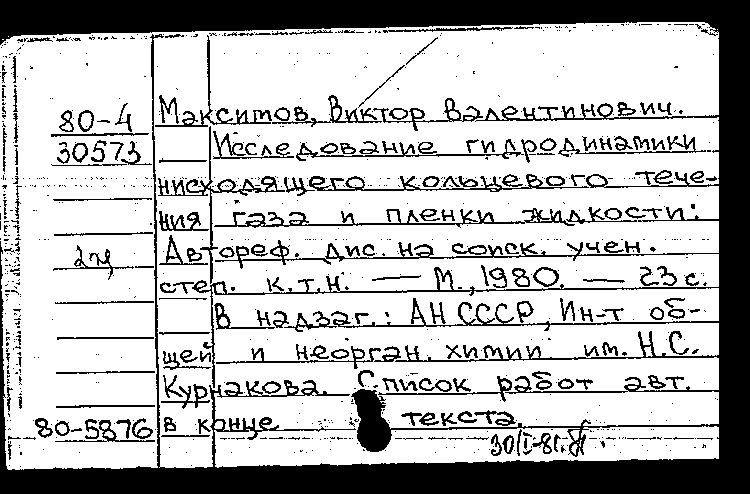 80-4 Максимов, Виктор Валентинович.
30573 Исследование гидродинамики
нисходящего кольцевого тече-
ния газа и пленки жидкости:
Автореф. дис. на соиск. учен.
степ. к.т.н. — М., 1980. — 23 с.
В надзаг.: АН СССР, Ин-т об-
щей и неорган. химии им. Н.С.
Курнакова. Список работ авт.
80-5876 в конце текста.
30/I-81.